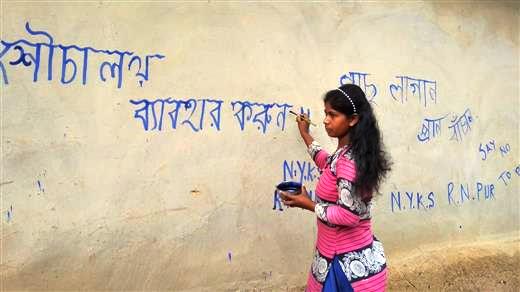 শৌচালয়
ব্যাবহার করুন ॥
গাছ লাগান
প্রান বাঁচান
SAY NO
TO
N.Y.K.S
N.Y.K.S R.N.PUR